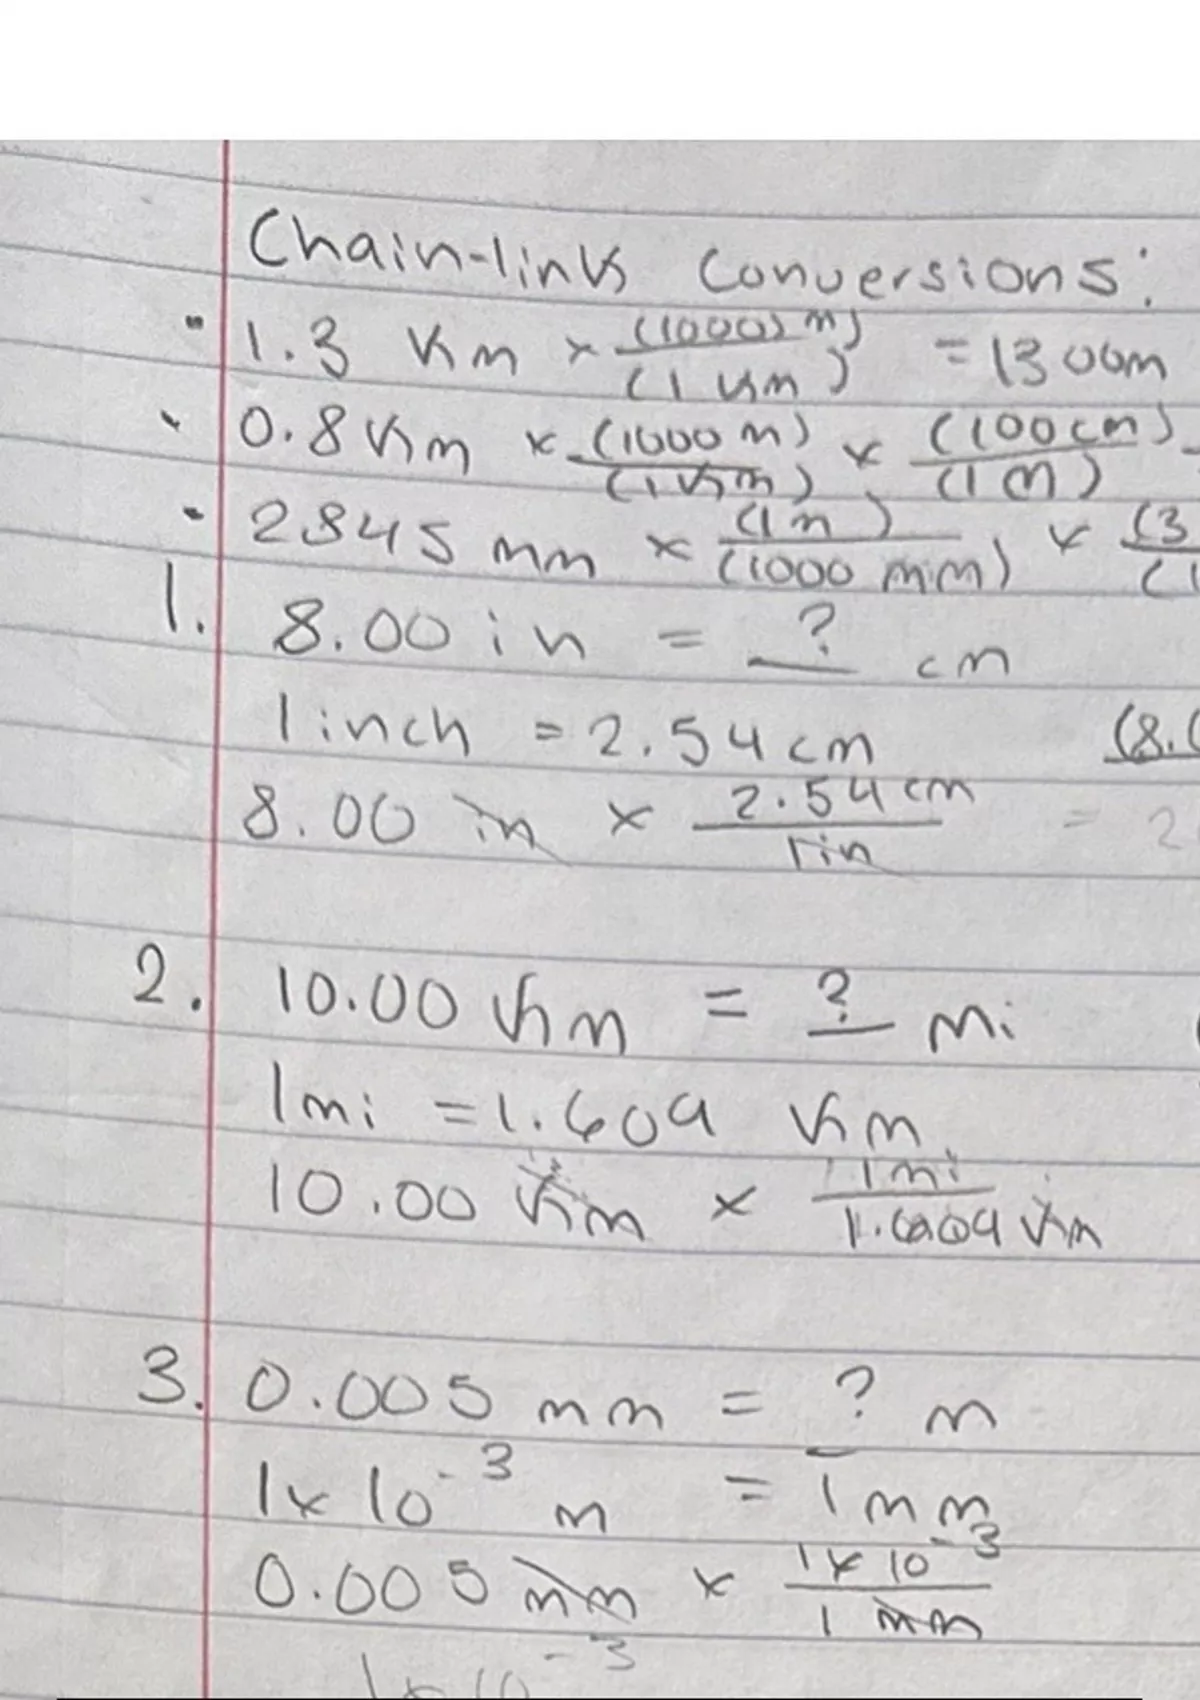 Chain-links Conversions:
• 1.3 km × (1000 m) / (1 km) = 1300m
• 0.8 km × (1000 m) / (1 km) × (100 cm) / (1 m)
• 2845 mm × (1 m) / (1000 mm) × (3 / (1
1. 8.00 in = ? cm
1 inch = 2.54 cm (8.0
8.00 in × 2.54 cm / 1 in = 2
2. 10.00 km = ? mi
1 mi = 1.609 km
10.00 km × 1 mi / 1.609 km
3. 0.005 mm = ? m
1 × 10⁻³ m = 1 mm
0.005 mm × 1 × 10⁻³ / 1 mm
1 × 10⁻³